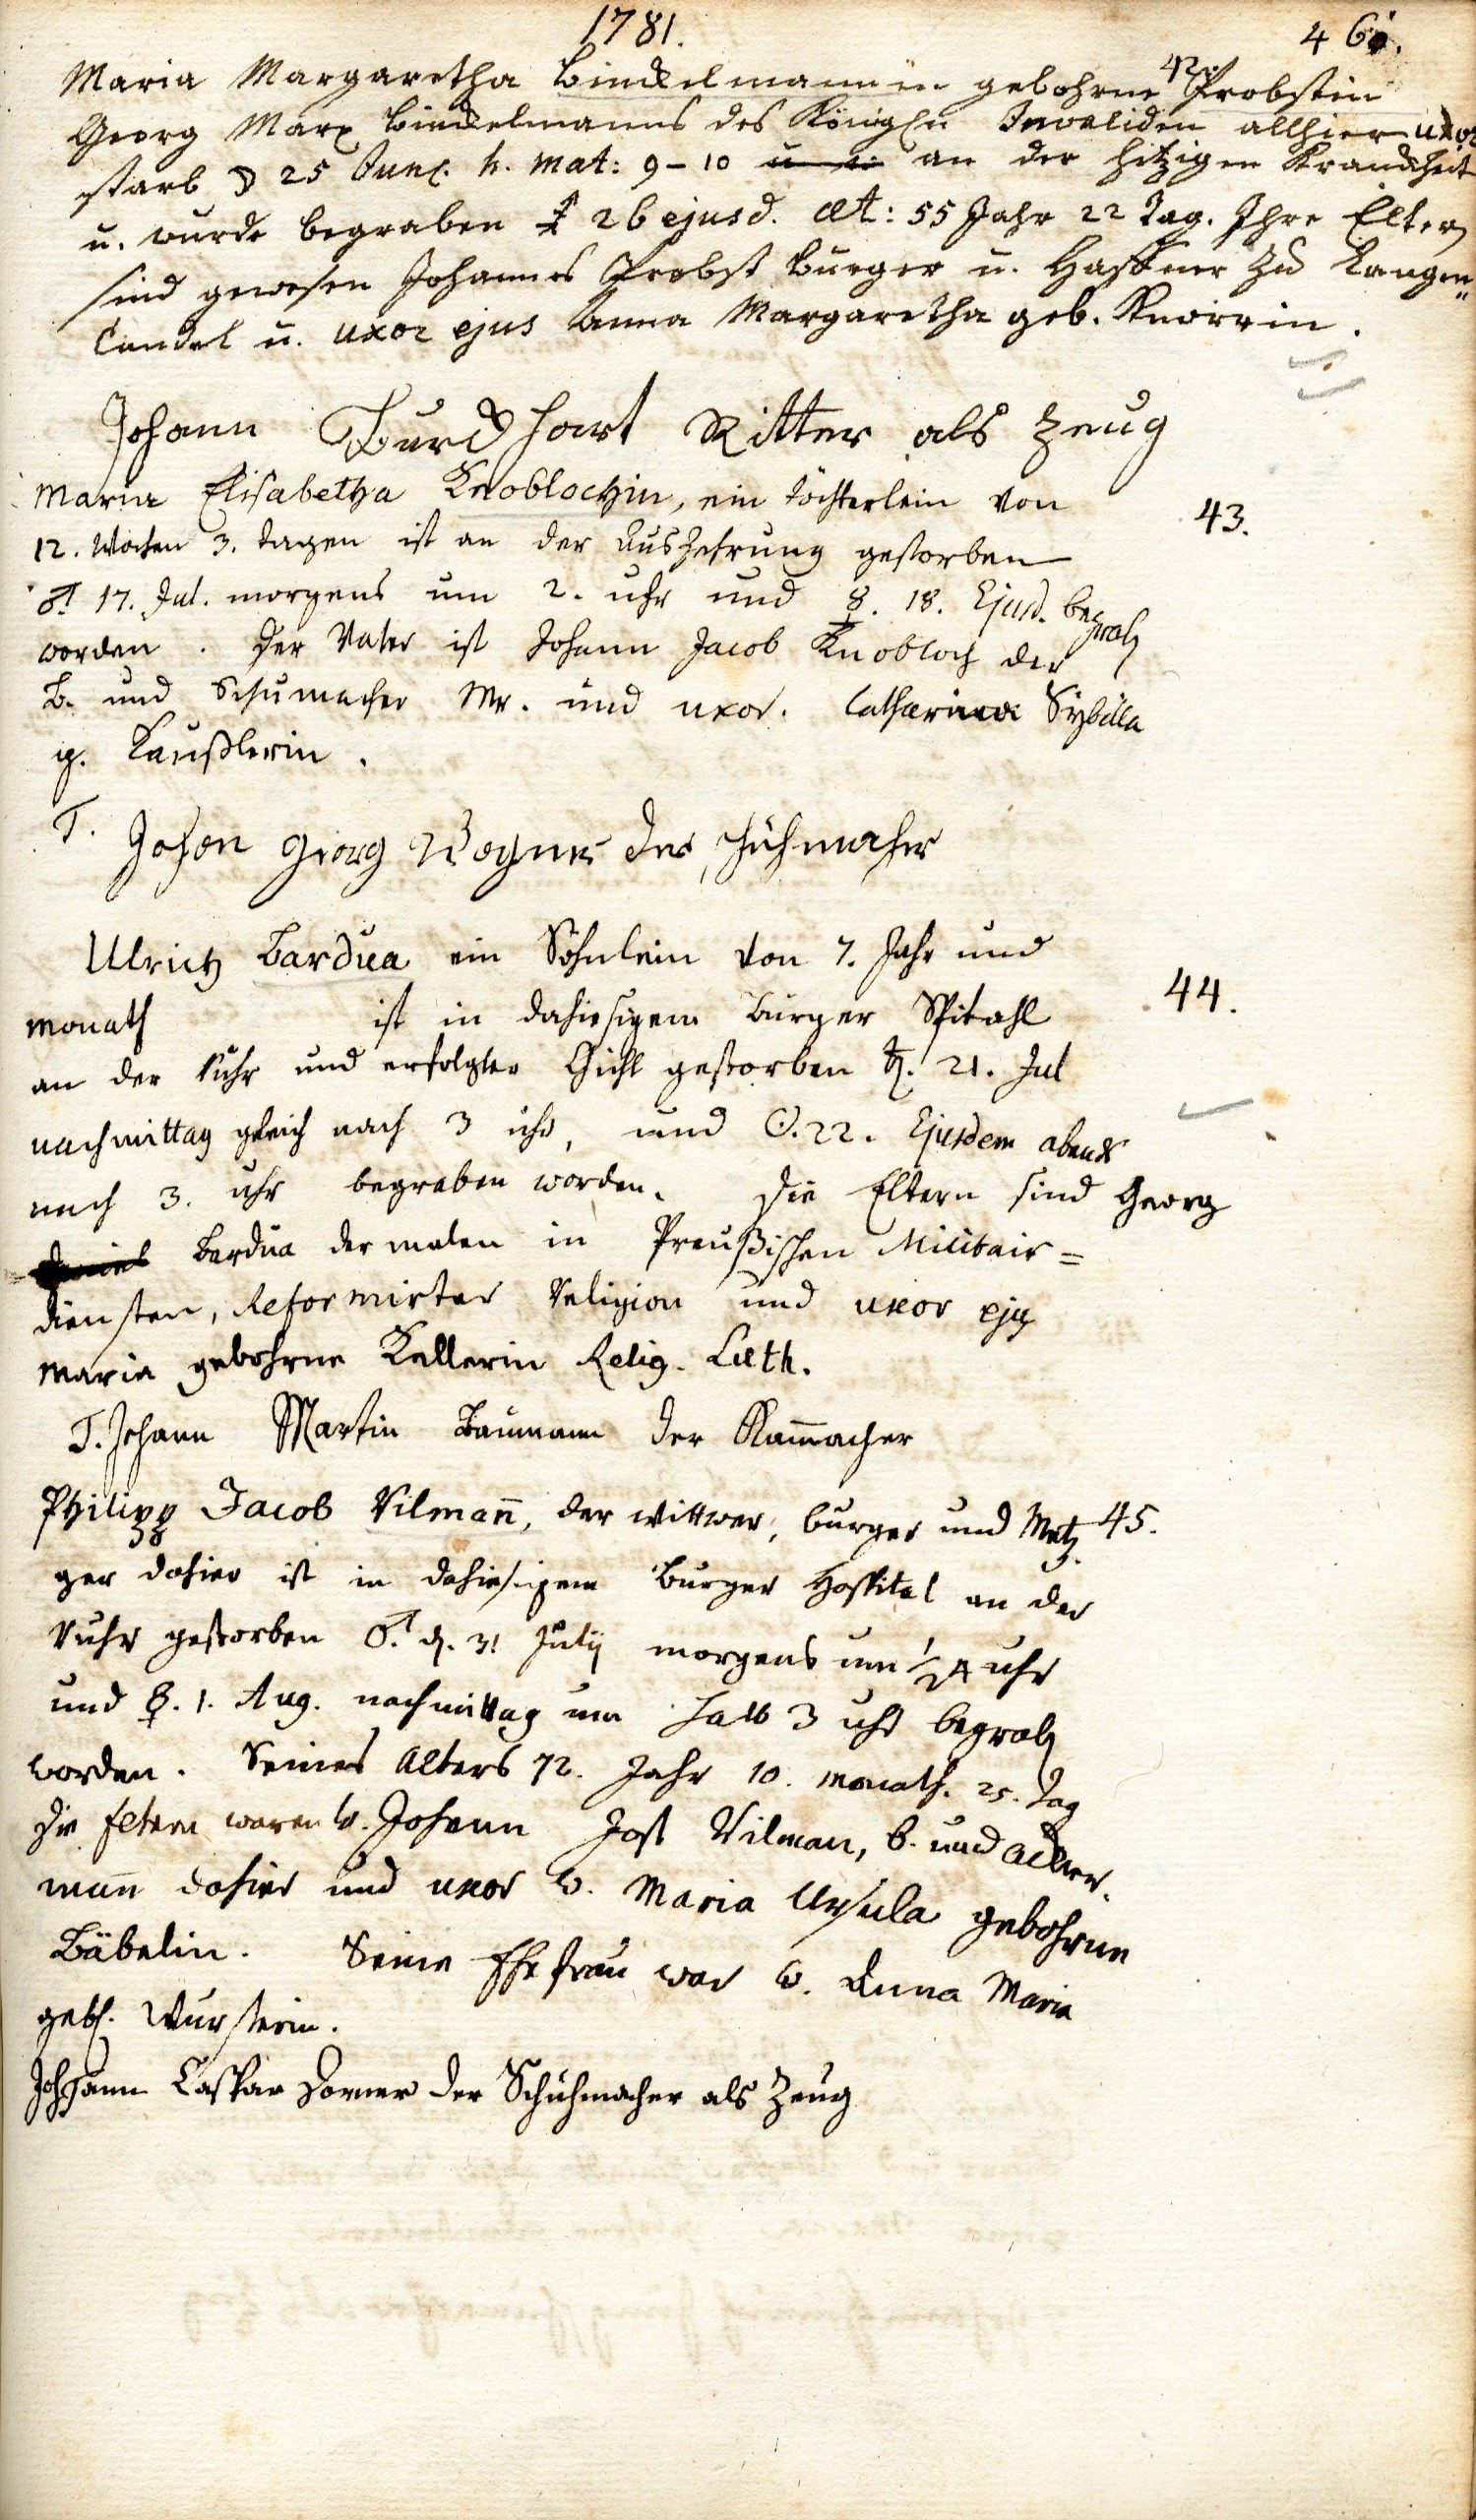 1781.
461.
42.
Maria Margaretha Binckelmannin gebohrne Probstin
Georg Marx Binckelmanns des Königln Invaliden allhier uxor
starb ☽ 25 Junl. h. mat: 9-10 an der hitzigen Kranckheit
u. wurde begraben ♂ 26 ejusd. æt: 55 Jahr 22 Tag. Ihre Eltern
sind gewesen Johannes Probst Burger u. Haffner zu Langen„
Candel u. uxor ejus Anna Margaretha geb. Knörrin.
Johann Burckhart Ritter als Zeug
Maria Elisabetha Knoblochin, ein Töchterlein von
43.
12. Wochen 3. Tagen ist an der Auszehrung gestorben
♂. 17. Jul. morgens um 2. uhr und ☿. 18. Ejusd. begrab
worden. Der Vater ist Johann Jacob Knobloch der
B. und Schumacher Mr. und uxor. Catharina Sybilla
g. Kaußlerin.
T. Johan Georg Wagner der Schuhmacher
Ulrich Bardua ein Söhnlein von 7. Jahr und
44.
monath ist in dahiesigem Burger Spitahl
an der Ruhr und erfolgter Gicht gestorben ♄. 21. Jul
nachmittag gleich nach 3 uhr, und ☉. 22. Ejusdem abends
nach 3. uhr begraben worden. Die Eltern sind Georg
Bardua dermalen in Preußischen Militair=
diensten, Reformirter Religion und uxor ejq
Maria gebohrne Kellerin Relig. Luth.
T. Johann Martin Baumann der Kammacher
Philipp Jacob Vilmañ, der Wittwer, burger und Metz
45.
ger dahier ist in dahiesigem Burger Hospital an der
Ruhr gestorben ♂. d. 31 Julij morgens um 1/2 4 uhr
und ☿. 1. Aug. nachmittag um halb 3 uhr begrab
worden. Seines Alters 72. Jahr 10. monath. 25. Tag
Die Eltern waren w. Johann Jost Vilman, b. und Acker-
mañ dahier und uxor w. Maria Ursula gebohrne
Bäbelin. Seine Ehefrau war w. Anna Maria
gebh. Wursterin.
Johann Caspar Dorner der Schuhmacher als Zeug